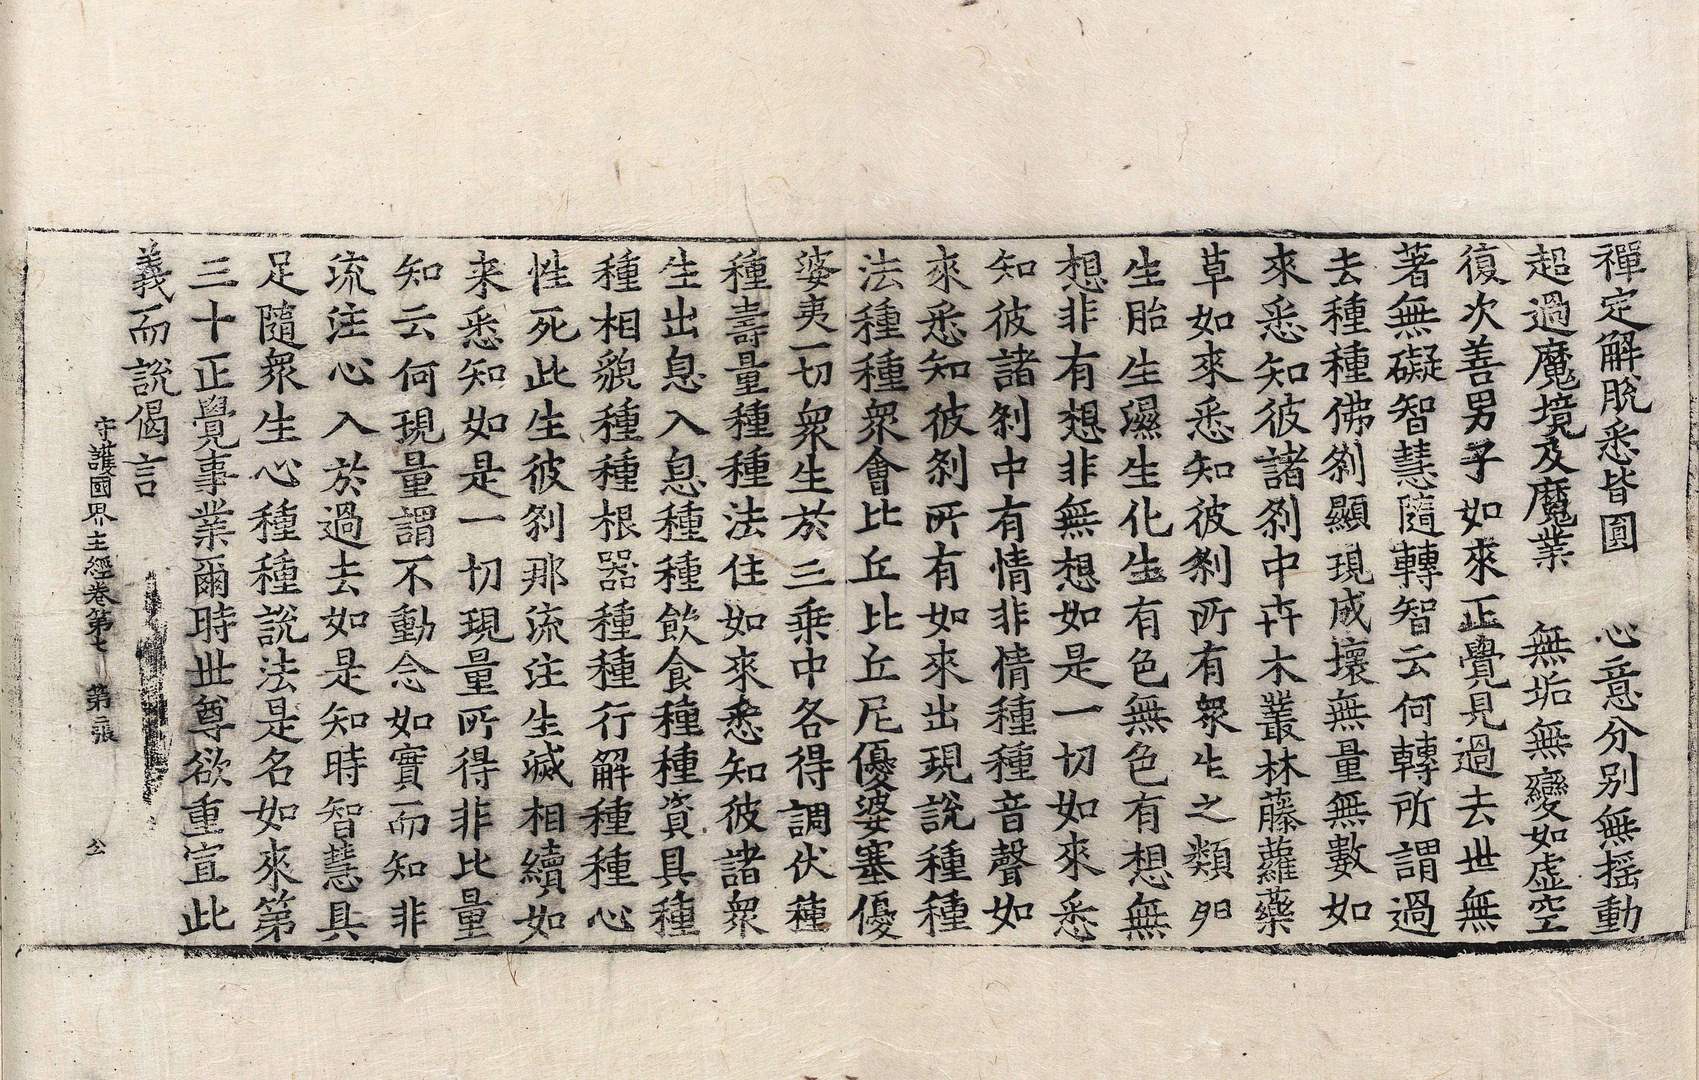 禪定解脫悉皆圓　心意分別無揺動
超過魔境及魔業　無垢無變如虛空
復次善男子如來正覺見過去世無
著無礙智慧隨轉智云何轉所謂過
去種種佛刹顯現成壞無量無數如
來悉知彼諸刹中卉木叢林藤蘿藥
草如來悉知彼刹所有衆生之類卵
生胎生濕生化生有色無色有想無
想非有想非無想如是一切如來悉
知彼諸刹中有情非情種種音聲如
來悉知彼刹所有如來出現說種種
法種種衆會比丘比丘尼優婆塞優
婆夷一切衆生於三乗中各得調伏種
種壽量種種法住如來悉知彼諸衆
生出息入息種種飲食種種資具種
種相貌種種根器種種行解種種心
性死此生彼刹那流注生滅相續如
来悉知如是一切現量所得非比量
知云何現量謂不動念如實而知非
流注心入於過去如是知時智慧具
足隨衆生心種種說法是名如來第
三十正覺事業爾時世尊欲重宣此
義而說偈言
守護國界主經卷第七　第二張　㒰